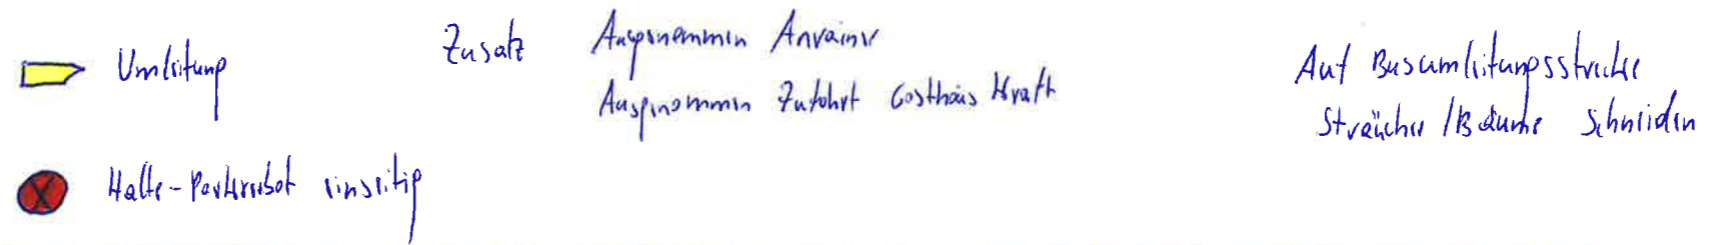 Umleitung
Zusatz Ausgenommen Anrainer
Ausgenommen Zufahrt Gasthaus Kraft
Auf Busumleitungsstrecke
Sträucher / Bäume schneiden
Halte-Parkverbot einseitig